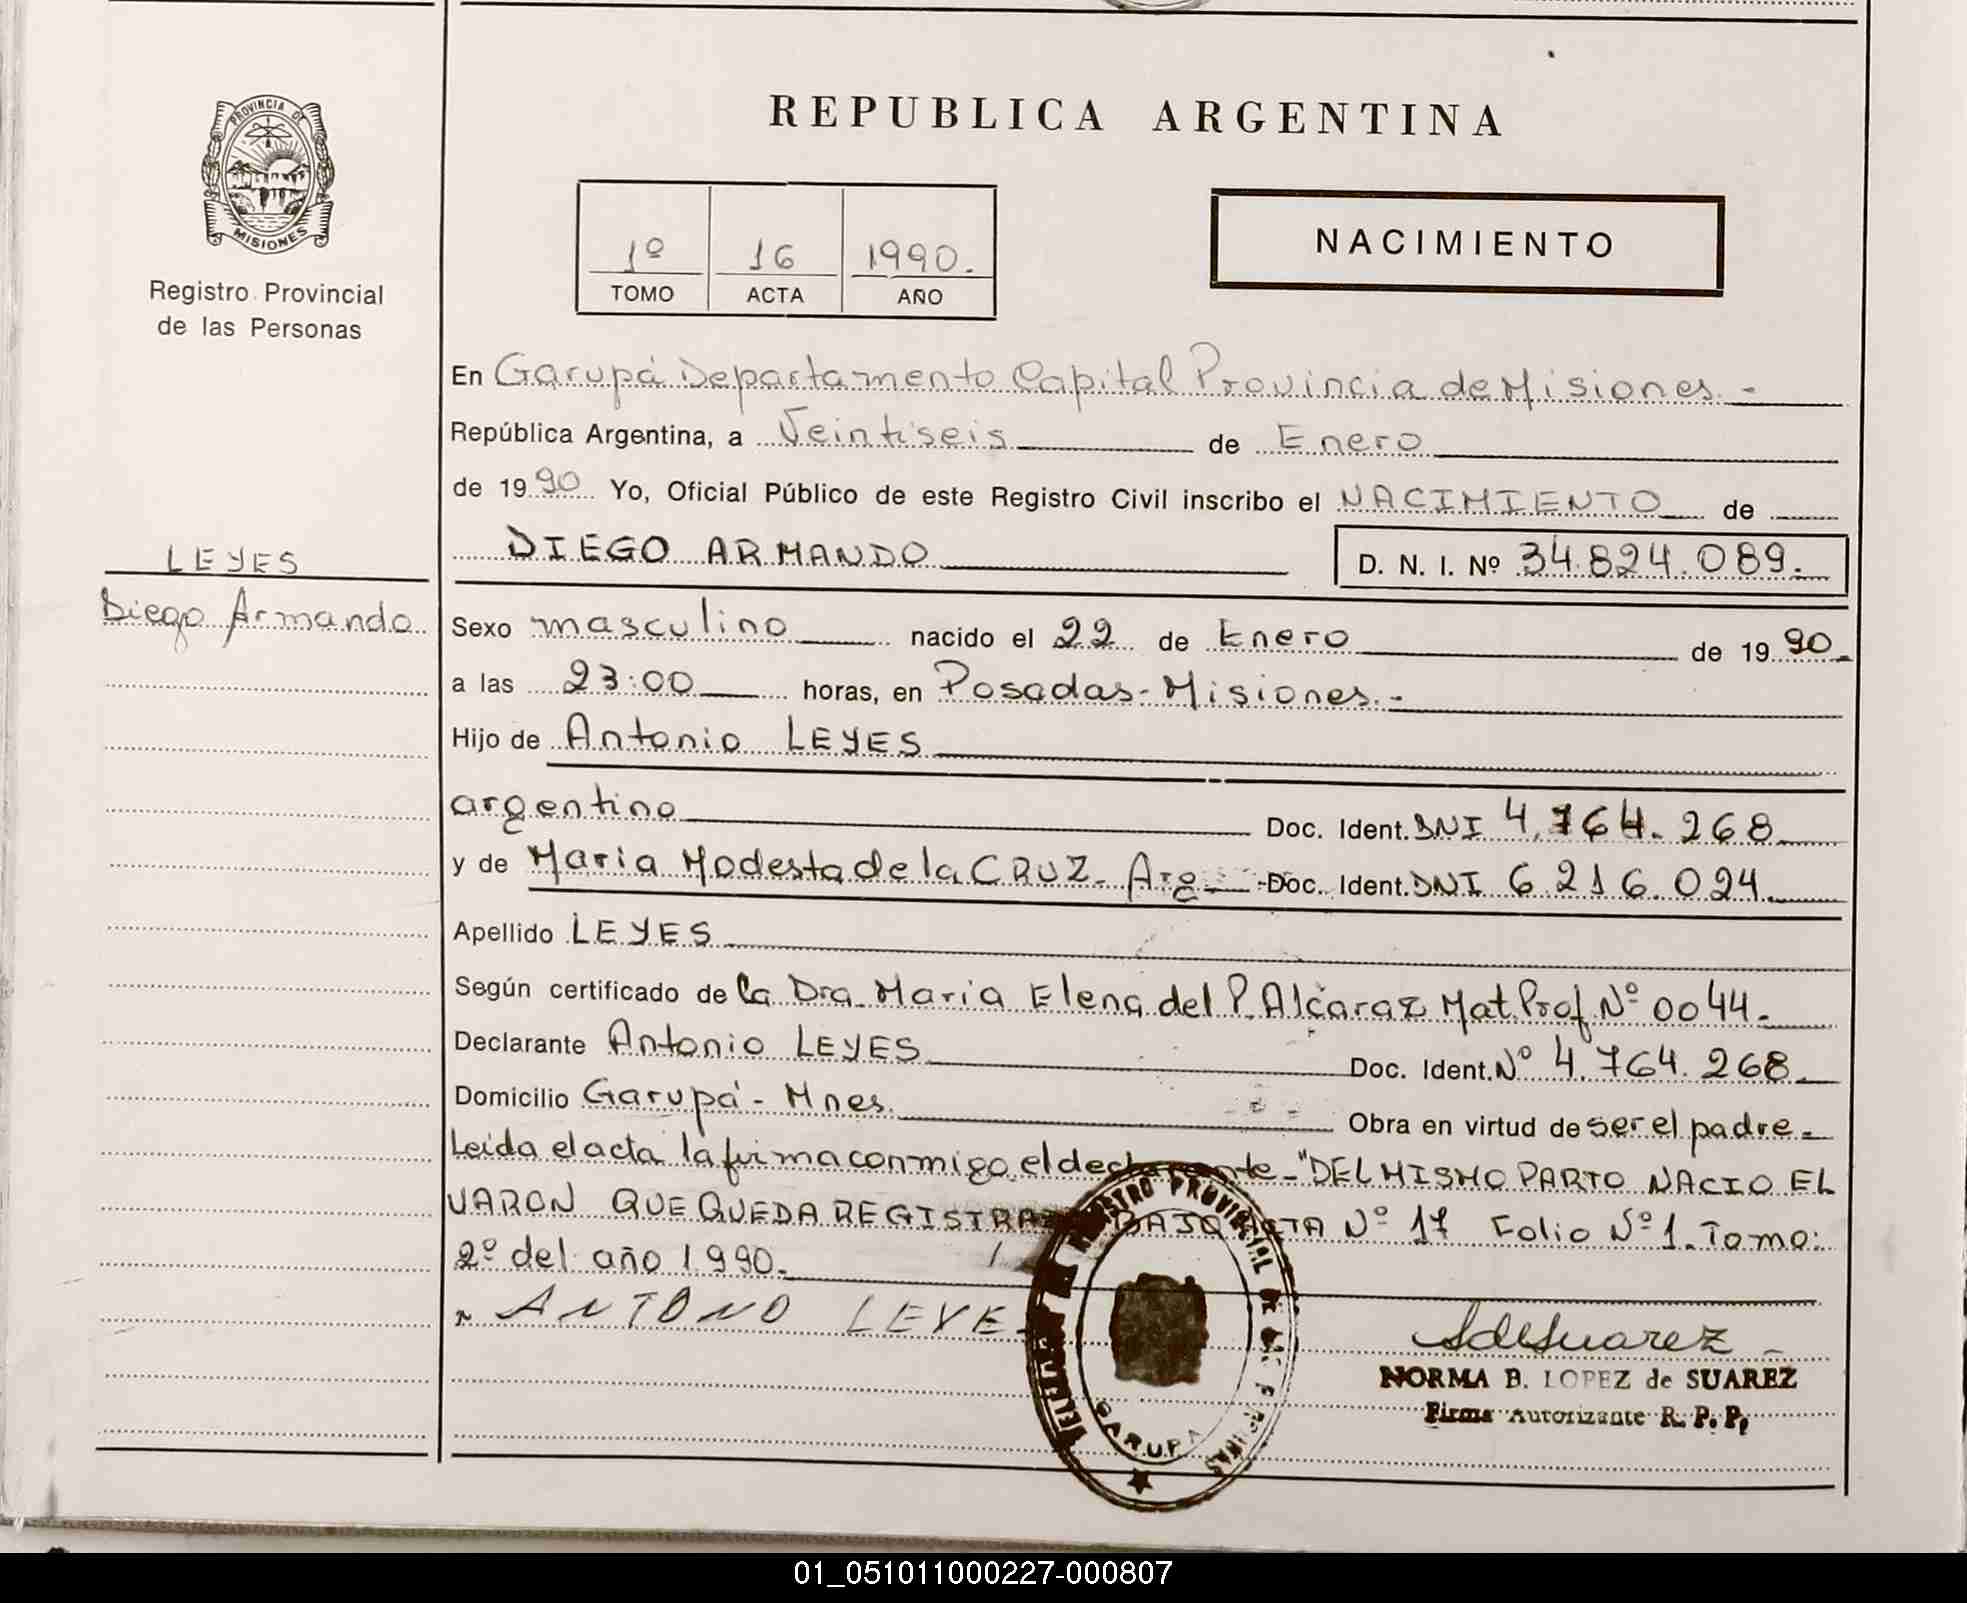 REPUBLICA ARGENTINA
PROVINCIA DE
MISIONES
Registro Provincial
de las Personas
1º 16 1990.
TOMO ACTA AÑO
NACIMIENTO
En Garupá Departamento Capital Provincia de Misiones.-
República Argentina, a Veintiseis de Enero
de 1990 Yo, Oficial Público de este Registro Civil inscribo el NACIMIENTO de
DIEGO ARMANDO D. N. I. Nº 34.824.089.
LEYES
Diego Armando
Sexo masculino nacido el 22 de Enero de 1990.
a las 23:00 horas, en Posadas-Misiones.-
Hijo de Antonio LEYES
argentino Doc. Ident. DNI 4.764.268
y de Maria Modesta de la CRUZ- Arg Doc. Ident. DNI 6.216.024
Apellido LEYES
Según certificado de la Dra. Maria Elena del P. Alcaraz Mat. Prof. Nº 0044.
Declarante Antonio LEYES Doc. Ident. Nº 4.764.268
Domicilio Garupá - Mnes. Obra en virtud de ser el padre.
Leída el acta la firma conmigo el declarante-"DEL MISMO PARTO NACIO EL
VARON QUE QUEDA REGISTRADO BAJO ACTA Nº 17 Folio Nº 1. Tomo:
2º del año 1990.
ANTONO LEYE
NORMA B. LOPEZ de SUAREZ
Firma Autorizante R. P. P.
REGISTRO PROVINCIAL DE LAS PERSONAS
GARUPA
01_051011000227-000807